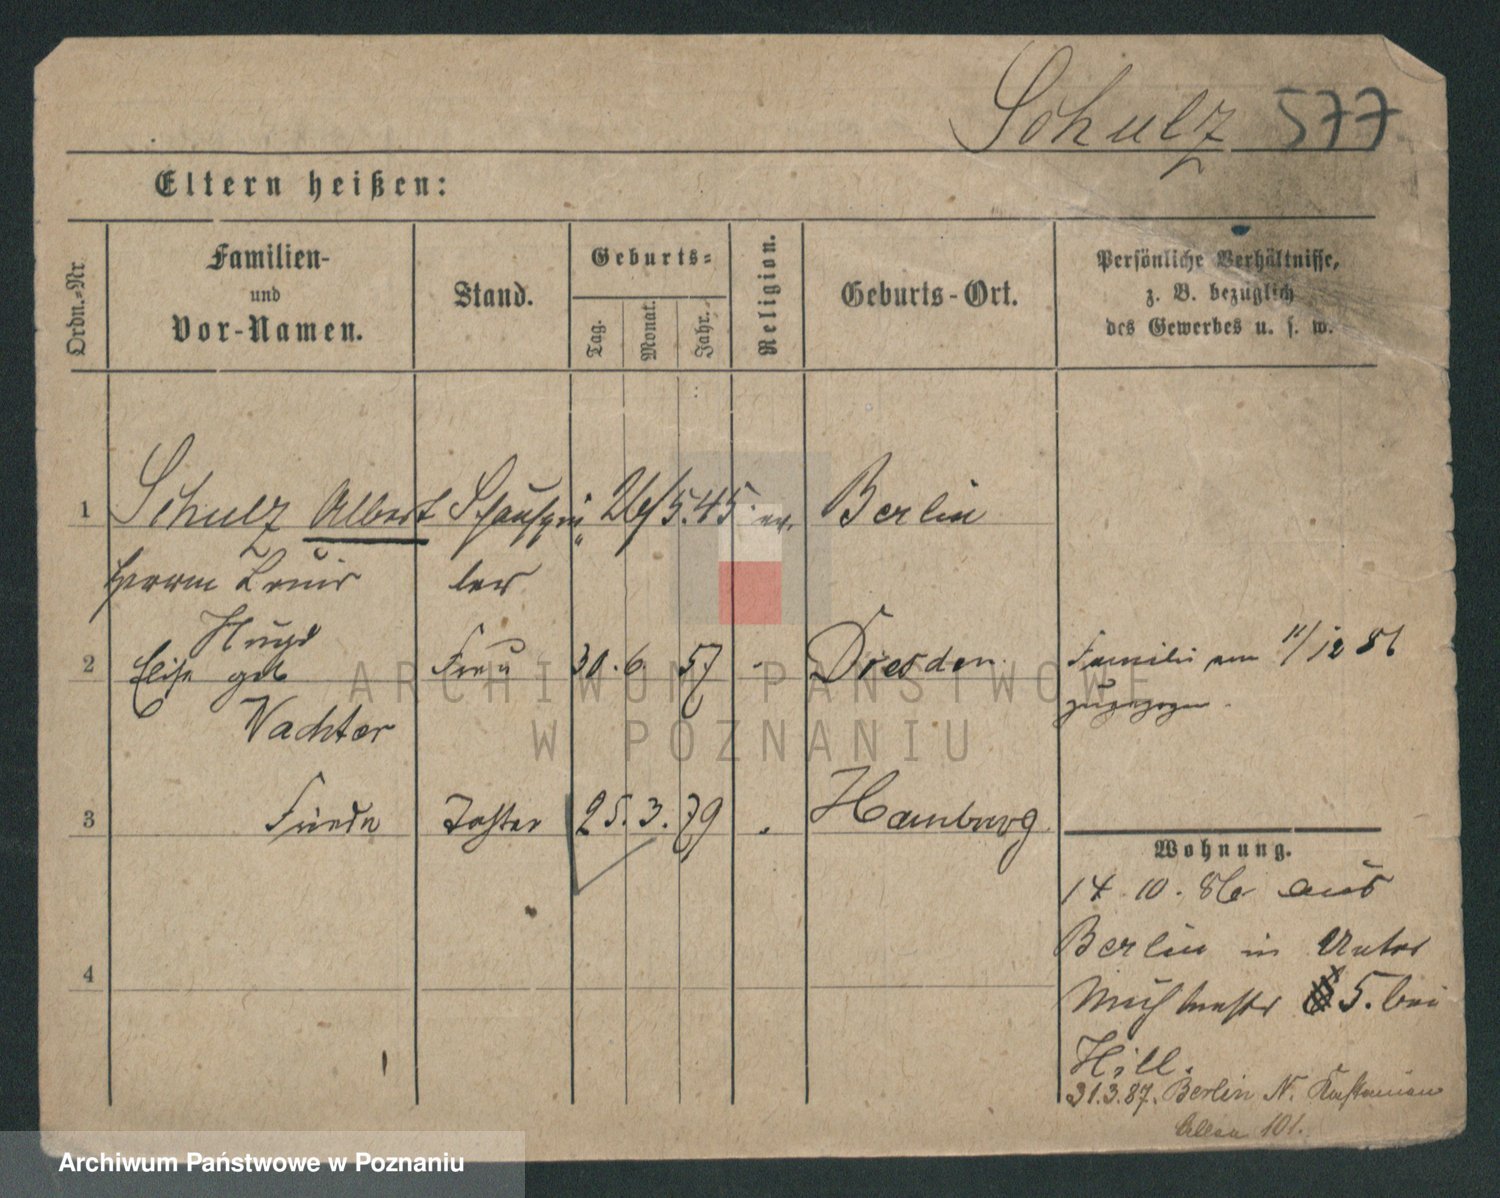 Schulz 577
Eltern heißen:
Ordn.-Nr.
Familien-
und
Vor-Namen.
Stand.
Geburts-
Tag.
Monat.
Jahr.
Religion.
Geburts-Ort.
Persönliche Verhältnisse,
z. B. bezüglich
des Gewerbes u. s. w.
1 Schulz Albert Schauspie 26/5.45. ev. Berlin
Herrm Louis ler
Hugo
2 Elise geb Frau 30. 6. 57 - Dresden. Familie am 11/12 86
Wachter zugezogen.
3 Frieda Tochter 25. 3. 79 " Hamburg
Wohnung.
14. 10. 86 aus
Berlin in Unter
5. bei
4
Hill.
31.3.87. Berlin N. Kastanien
allee 101.
ARCHIWUM PAŃSTWOWE
W POZNANIU
Archiwum Państwowe w Poznaniu